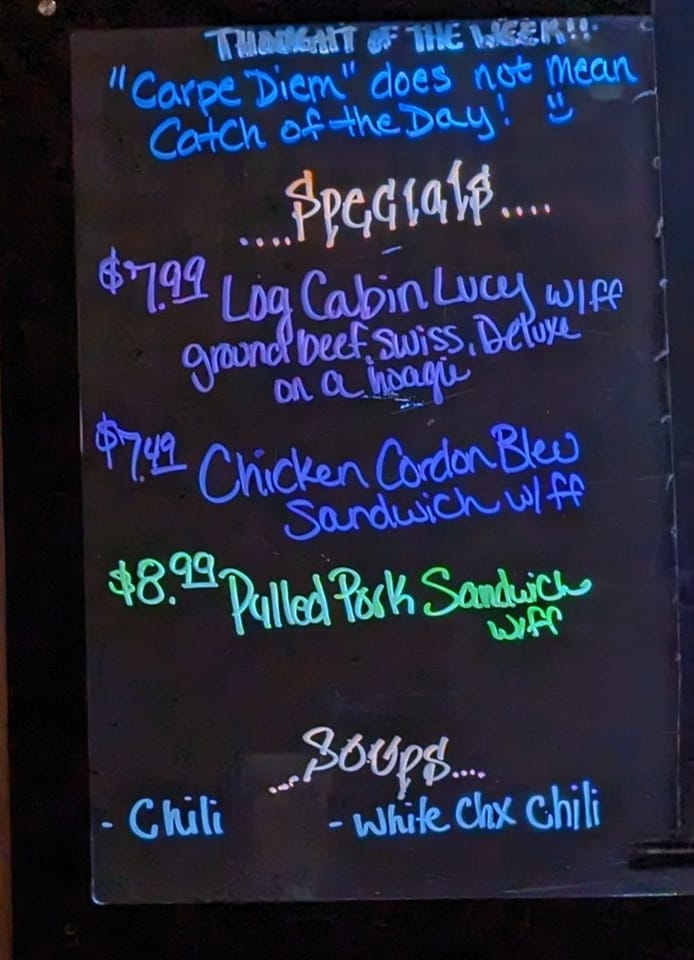 THOUGHT OF THE WEEK!!
"Carpe Diem" does not mean
Catch of the Day! :)
....Specials....
$7.99 Log Cabin Lucy w/ff
ground beef, swiss, Deluxe
on a hoagie
$7.49 Chicken Cordon Bleu
Sandwich w/ff
$8.99 Pulled Pork Sandwich
w/ff
...Soups....
- Chili - White Chx Chili